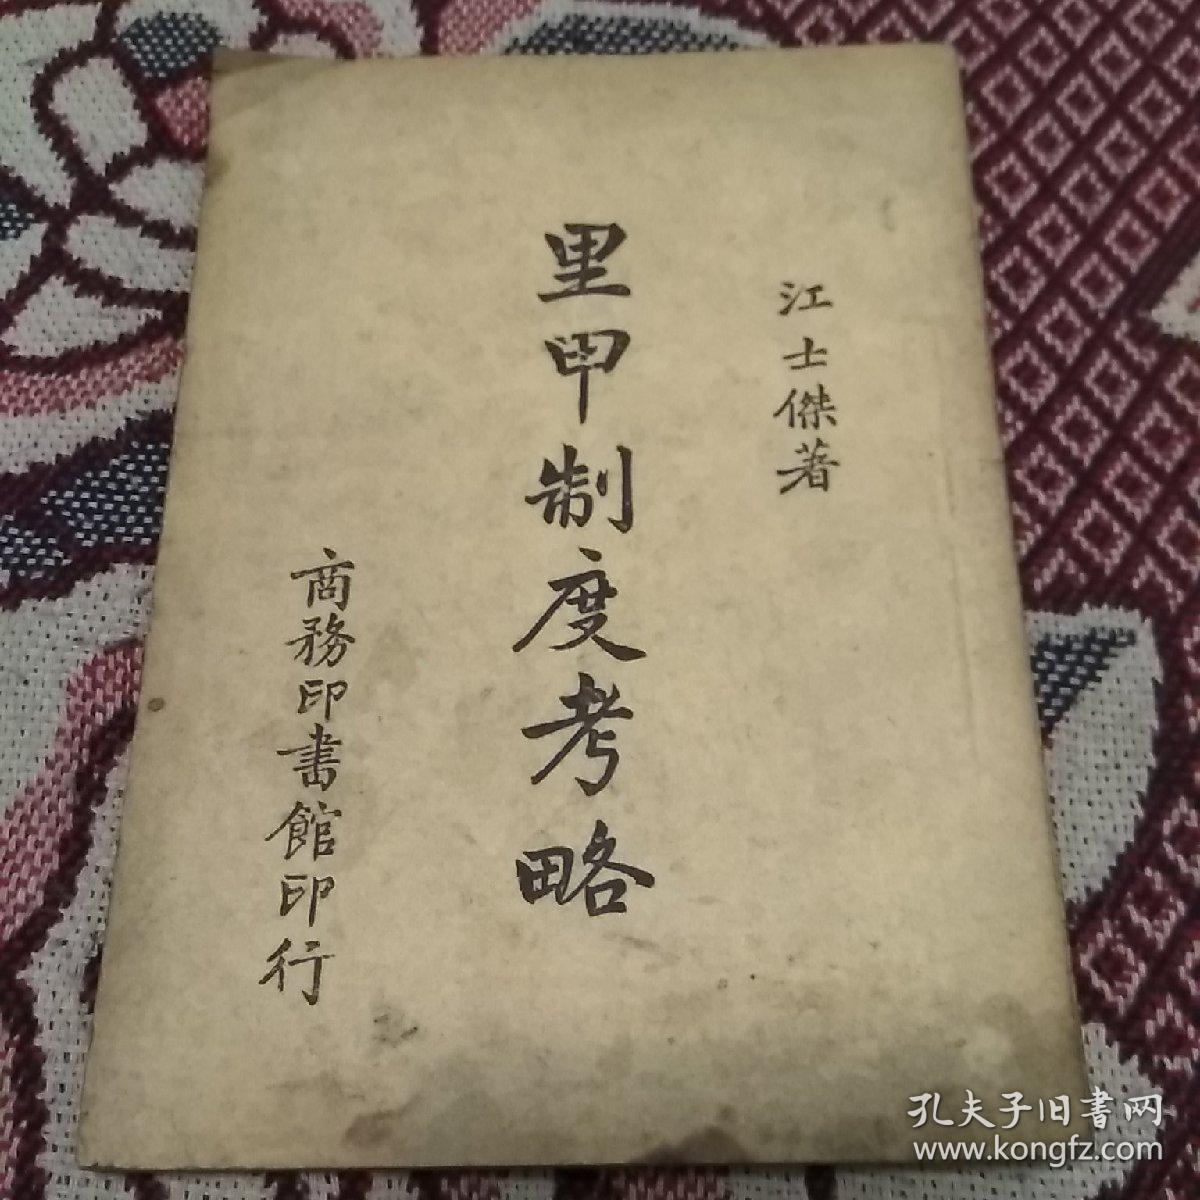 江士傑著
里甲制度考略
商務印書館印行
孔夫子旧書网
www.kongfz.com